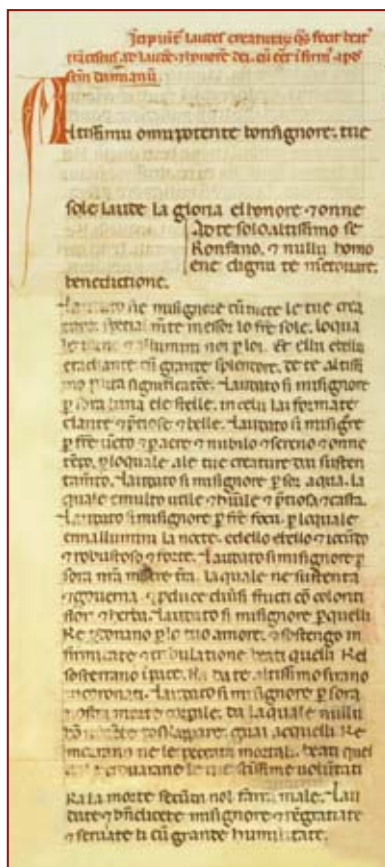 Incipiunt laudes creaturarum quas fecit beatus
franciscus ad laudem et honorem dei. cum esset infirmus apud
sanctum damianum
Altissimu omnipotente bonsignore. tue
sole laude la gloria elhonore et onne
Adte solo altissimo se
Konfano. et nullu homo
ene dignu te mentovare.
benedictione.
Laudato sie misignore cum tucte le tue crea
ture spetialmente messor lo frate sole. loqual
le iorno et allumini noi per loi. Et ellu ebellu
eradiante cum grande splendore. de te altissi
mo porta significatione. Laudato si misignore
per sora luna ele stelle. in celu lai formate
clarite et pretiose et belle. Laudato si misignore
per frate vento et per aere et nubilo et sereno et onne
tempo. per loquale ale tue creature dai susten
tamento. Laudato si misignore per sor aqua. la
quale emulto utile et humile et pretiosa et casta.
Laudato si misignore per frate focu. per loquale
ennallumini la nocte. edello ebello et iocundo
et robustoso et forte. Laudato si misignore per
sora nostra matre terra. laquale ne sustenta
et governa. et produce diversi fructi con coloriti
flori et herba. Laudato si misignore per quelli
Ke perdonano per lo tuo amore. et sostengo in
firmitate et tribulatione beati quelli Kel
sosterrano inpace. Ka da te altissimo sirano
incoronati. Laudato si misignore per sora
nostra morte corporale. da laquale nullu
homo vivente poskappare. guai acquelli Ke
morrano ne le peccata mortali. beati quel
li ke trovarane le tue sanctissime voluntati
Ka la morte secunda nol farra male. Lau
date et benedicete misignore et rengratiate
et serviate li cum grande humilitate.